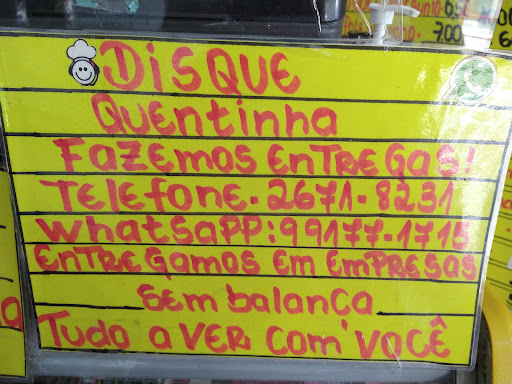 DISQUE
QUENTINHA
FAZEMOS ENTREGAS!
TELEFONE. 2671-8231
WHATSAPP: 99177-1715
ENTREGAMOS EM EMPRESAS
SEM balança
Tudo a VER COM VOCÊ
7.00